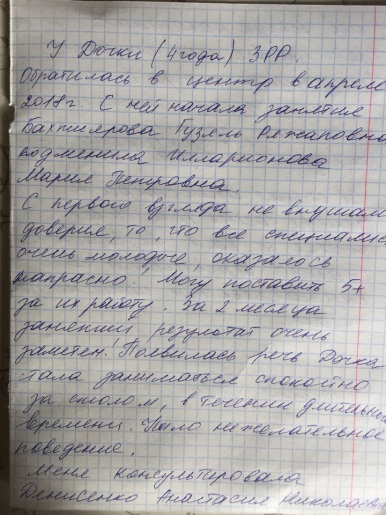 У Дочки (4 года) ЗРР.
Обратилась в центр в апреле
2018 г С ней начала занятия
Бахтиярова Гузель Режаповна
подменила Илларионова
Мария Петровна.
С первого взгляда не внушал
доверие, то, что все специалис
очень молодые, оказалось
напрасно! Могу поставить 5+
за их работу. За 2 месяца
занятий результат очень
заметен! Появилась речь Дочка
стала заниматься спокойно
за столом, в течении длительно
времени. Ушло нежелательное
поведение.
Меня консультировала
Денисенко Анастасия Николаевн